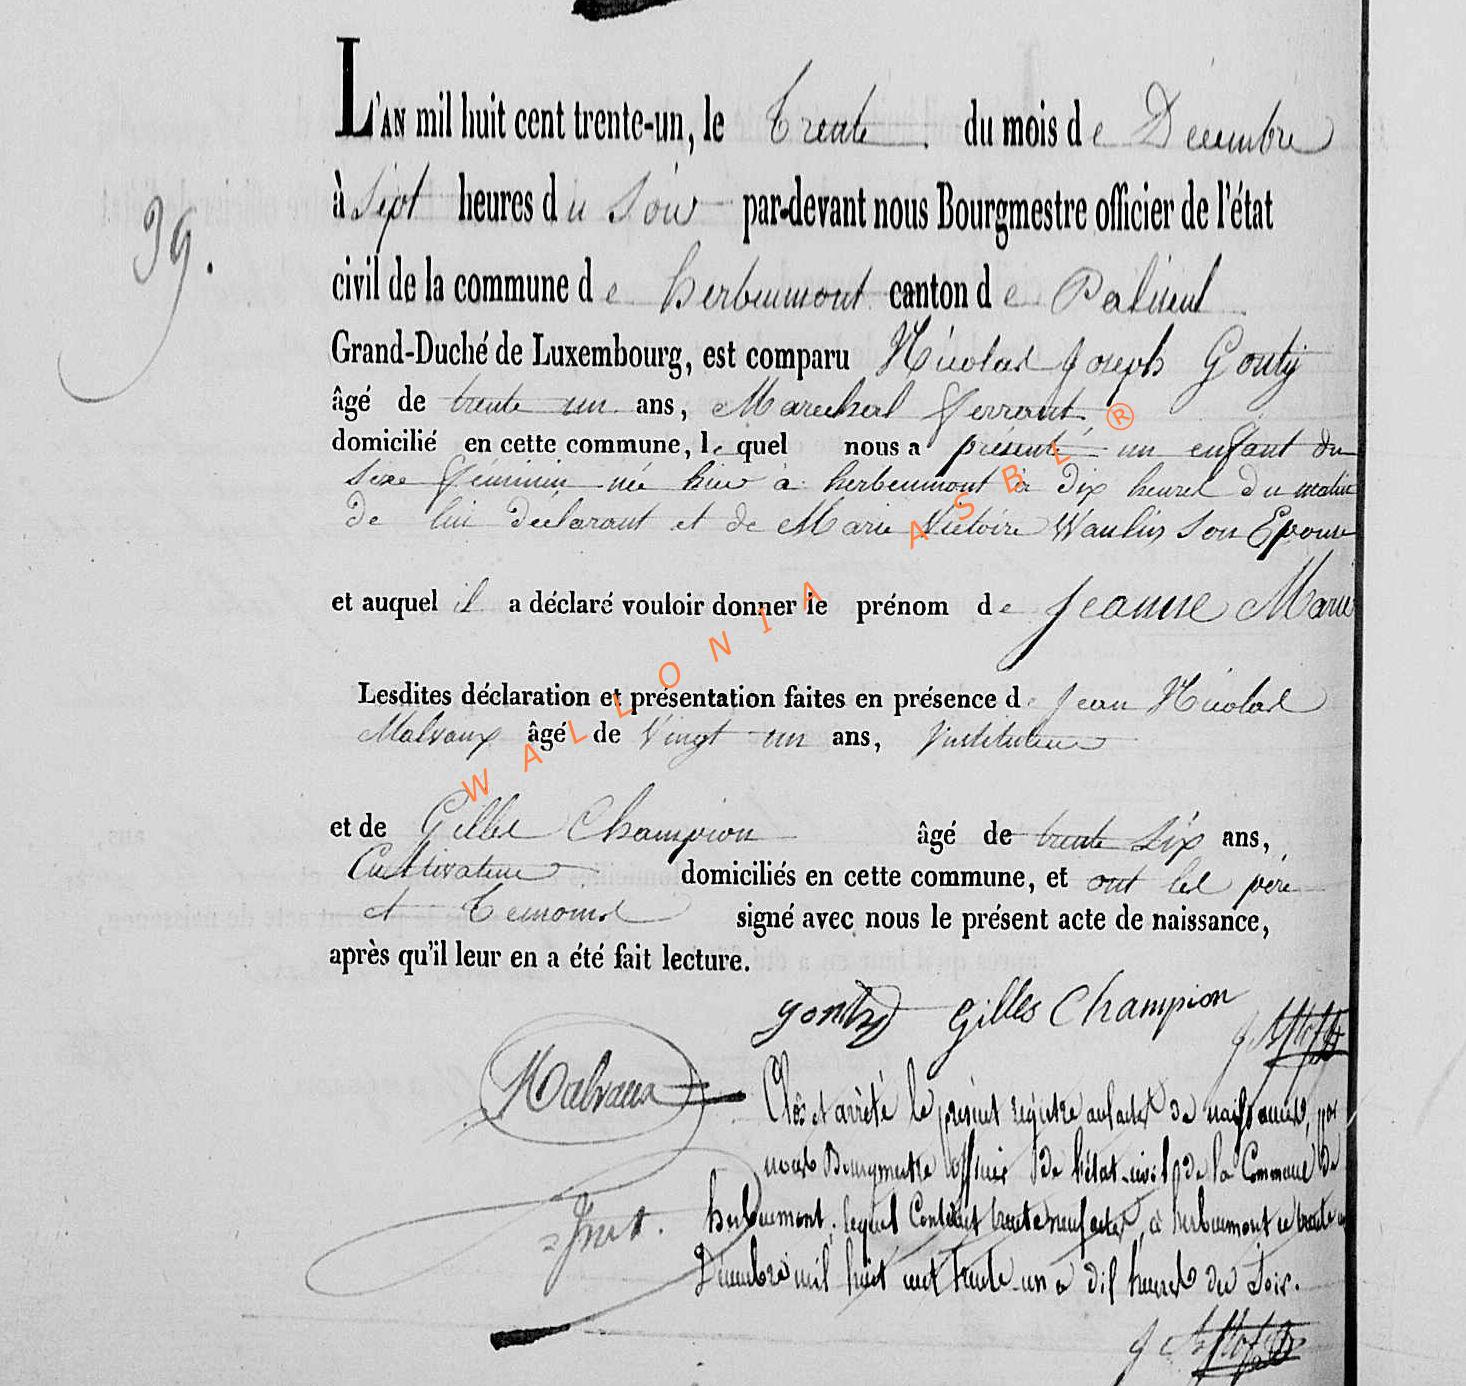 L'AN mil huit cent trente-un, le trente du mois de Décembre
39.
à Sept heures du Soir par-devant nous Bourgmestre officier de l'état
civil de la commune de herbeumont canton de Paliseul
Grand-Duché de Luxembourg, est comparu Nicolas Joseph Gonty
âgé de trente un ans, Marechal ferrant
domicilié en cette commune, lequel nous a présenté un enfant du
sexe féminin née hier à herbeumont à dix heures du matin
de lui déclarant et de Marie Victoire Waulin Son Epouse
et auquel il a déclaré vouloir donner le prénom de Jeanne Marie
Lesdites déclaration et présentation faites en présence de Jean Nicolas
Malvaux âgé de Vingt un ans, Instituteur
et de Gilles Champion âgé de trente Six ans,
Cultivateur domiciliés en cette commune, et ont les père
et Temoins signé avec nous le présent acte de naissance,
après qu'il leur en a été fait lecture.
gonty Gilles Champion
Malvaux
Clos et arrêté le présent registre aux actes de naissances, par
nous Bourgmestre officier de l'état-civil de la Commune de
herbeumont, lequel Contient trente neuf actes, à herbeumont ce trente un
Décembre mil huit cent trente-un a dix heures du Soir.
Inst.
WALLONIA ASBL ®